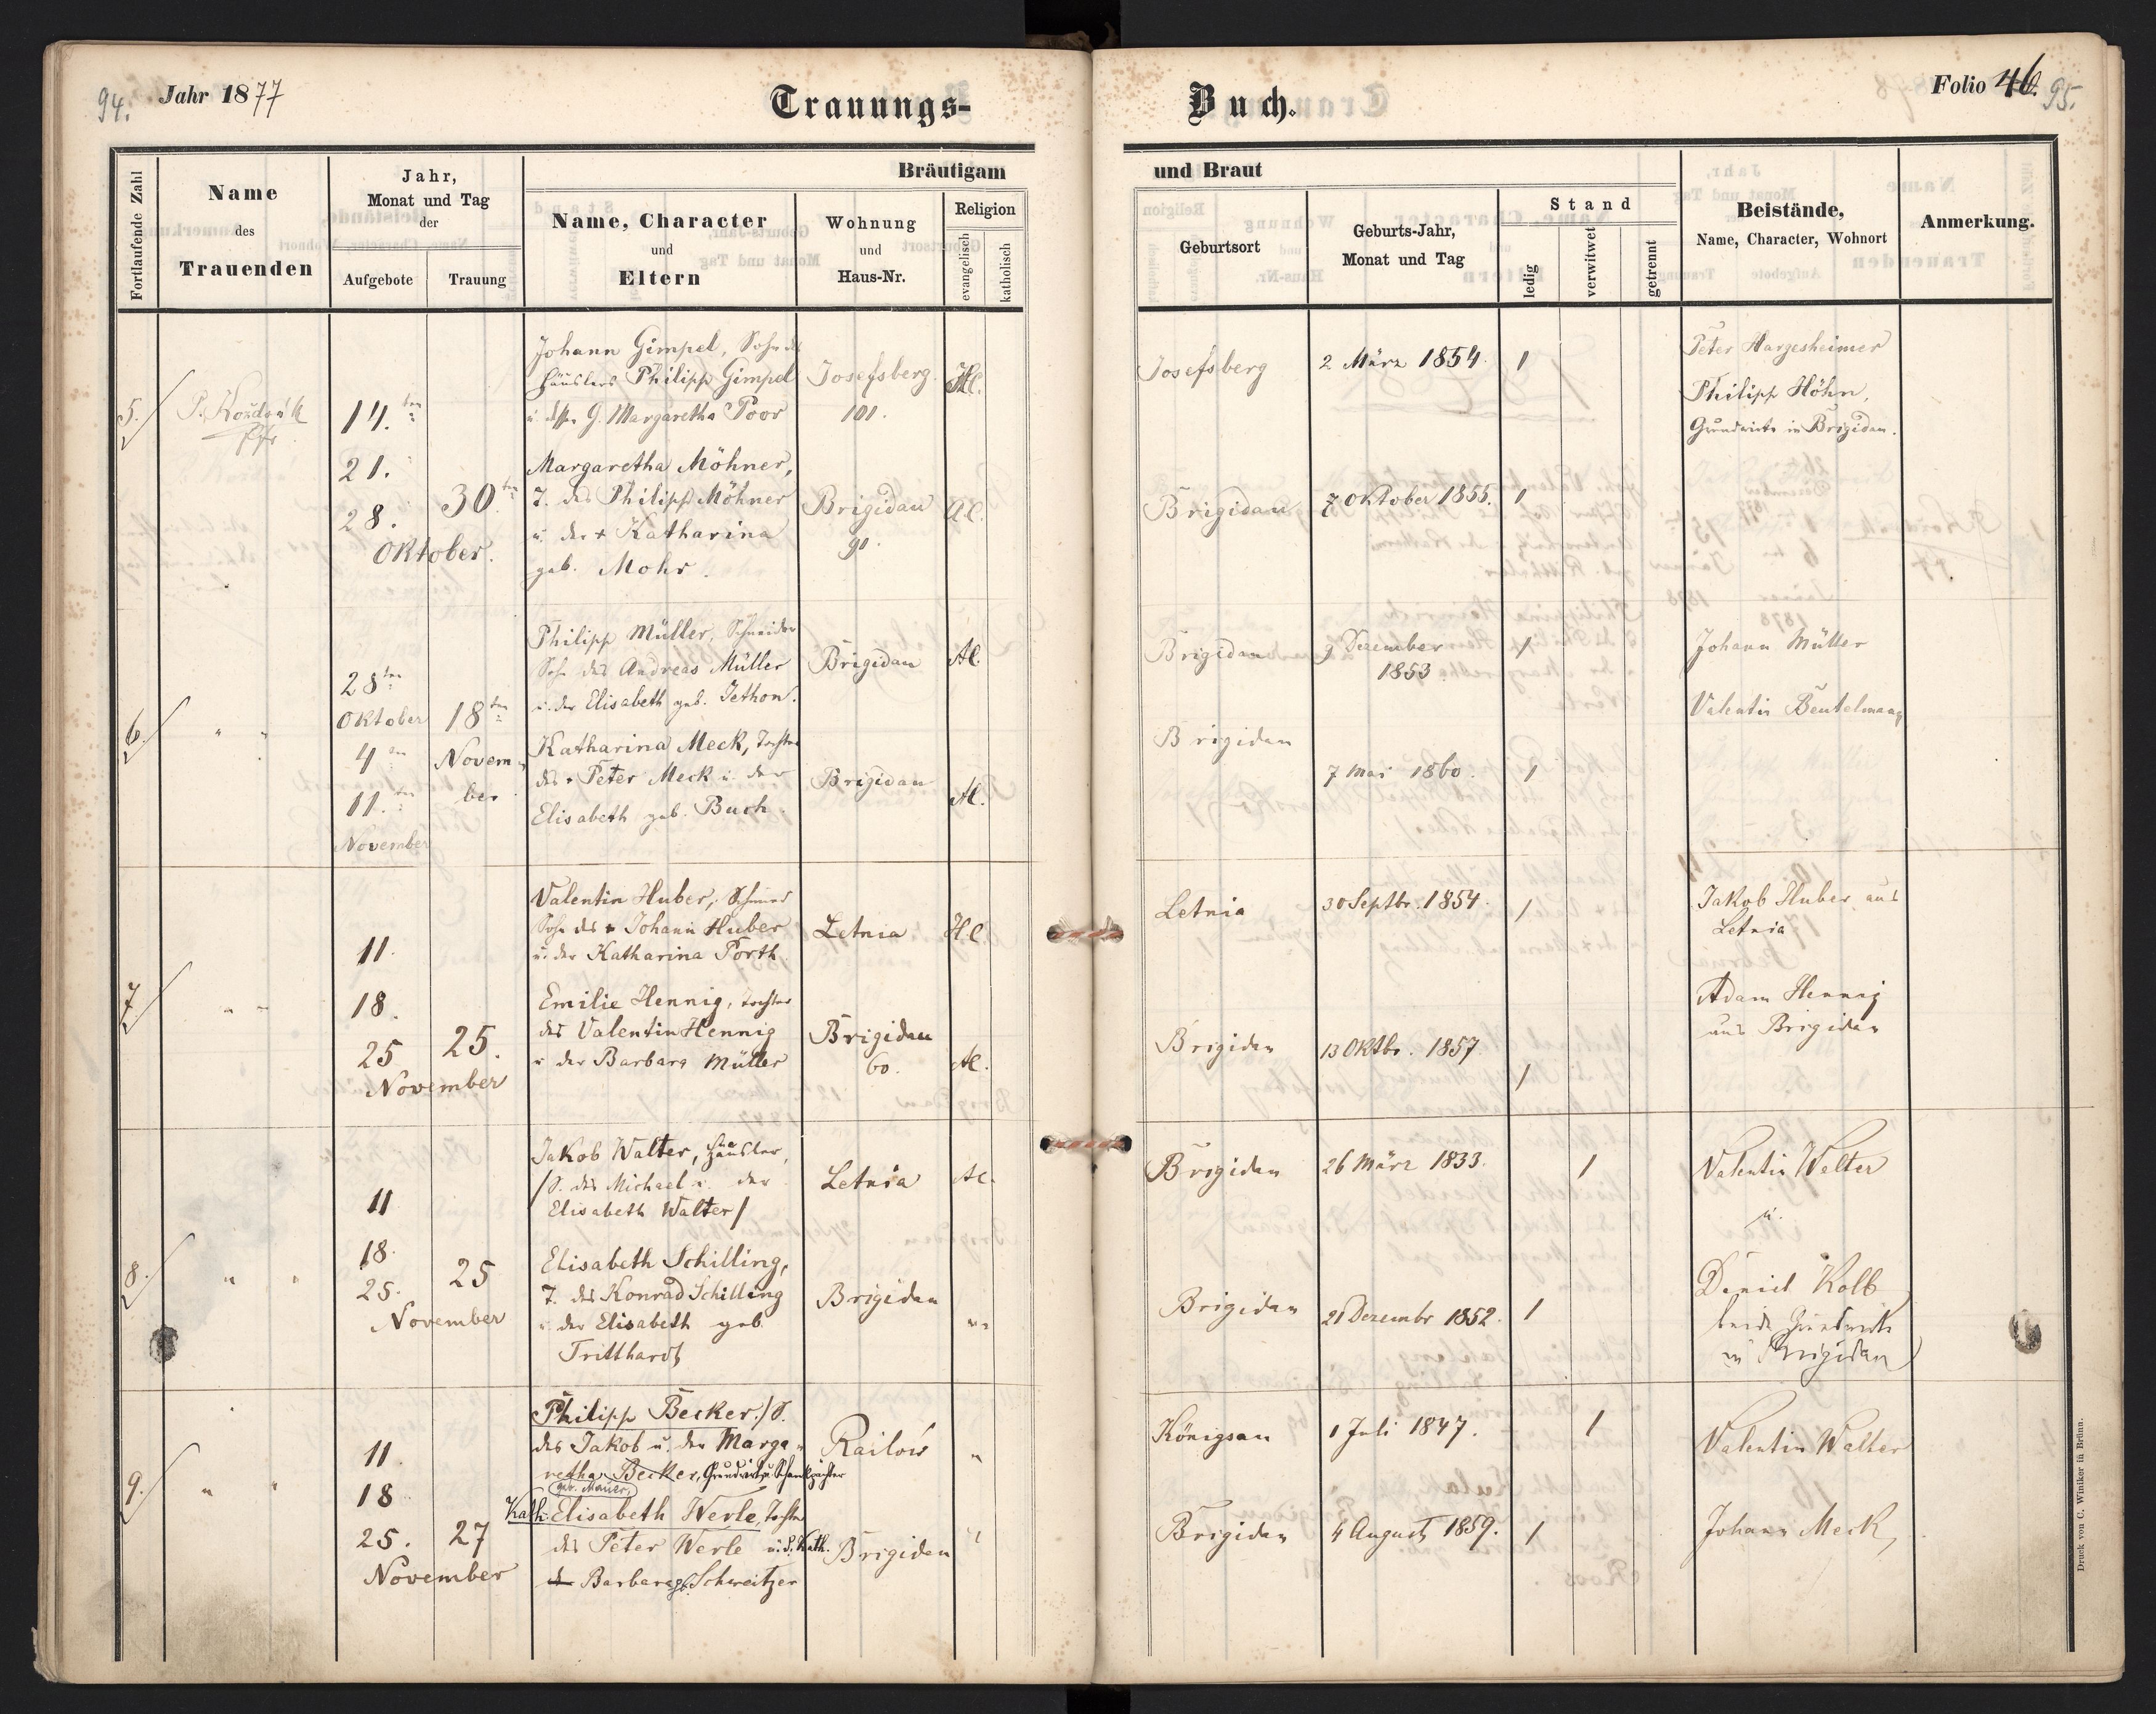 94. Jahr 1877
Trauungs-
Buch.
Folio 46. 95.
Fortlaufende Zahl
Name
des
Trauenden
Jahr,
Monat und Tag
der
Aufgebote
Trauung
Bräutigam
Name, Character
und
Eltern
Wohnung
und
Haus-Nr.
Religion
evangelisch
katholisch
und Braut
Geburtsort
Geburts-Jahr,
Monat und Tag
Stand
ledig
verwitwet
getrennt
Beistände,
Name, Character, Wohnort
Anmerkung.
5.
Pfr.
14.ten
21.
28.
Oktober.
30.ten
Johann Gimpel, Sohn des
Häuslers Philipp Gimpel
u. G. Margaretha Poor
Josefsberg
101.
Josefsberg
2 März 1854.
1
Peter Hargesheimer
Philipp Höhn,
Grundwirte in Brigidau.
Margaretha Möhner,
T. des Philipp Möhner
u. der + Katharina
geb. Mohr.
Brigidau
90.
Brigidau
7 Oktober 1855.
1
6.
" "
28ten
Oktober
4ten
11.ten
November
18ten
Novem-
ber
Philipp Müller, Schneider
Sohn des Andreas Müller
u. der Elisabeth geb. Jethon.
Brigidau
Brigidau
9 Dezember
1853
1
Johann Müller
Valentin Beutelmann
Katharina Meck, Tochter
des + Peter Meck u. der
Elisabeth geb. Buch.
Brigidau
Brigidau
7 Mai 1860.
1
7.
" "
11.
18.
25
November
25.
Valentin Huber,
Sohn des + Johann Huber
u. der Katharina Porth
Letnia
Letnia
30 Septbr. 1854.
1
Jakob Huber aus
Letnia
Emilie Hennig, Tochter
des Valentin Hennig
u der Barbara Müller
Brigidau
60.
Brigidau
13 Oktbr. 1857.
1
Adam Hennig
aus Brigidau
8.
" "
11
18.
25.
November
25
Jakob Walter, Häusler,
/S. des Michael u. der
Elisabeth Walter/
Letnia
Brigidau
26 März 1833.
1
Valentin Walter
u.
Elisabeth Schilling,
T. des Konrad Schilling
u der Elisabeth geb.
Tritthardt
Brigidau
" "
Brigidau
21 Dezembr 1852.
1
Daniel Kolb
beide Grundwirte
in Brigidau
9.
" "
11.
18
25.
November
27
Philipp Becker /S.
des Jakob u. der Marga-
retha Becker, Grundwirt u. Schankpächter
geb. Mauer,
Railów
"
Königsau
1 Juli 1847.
1
Valentin Walter
Kath. Elisabeth Werle, Tochter
des Peter Werle u. d. Kath.
Barbara gb. Schweitzer
Brigidau
"
Brigidau
4 August 1859.
1
Johann Meck,
Druck von C. Winiker in Brünn.